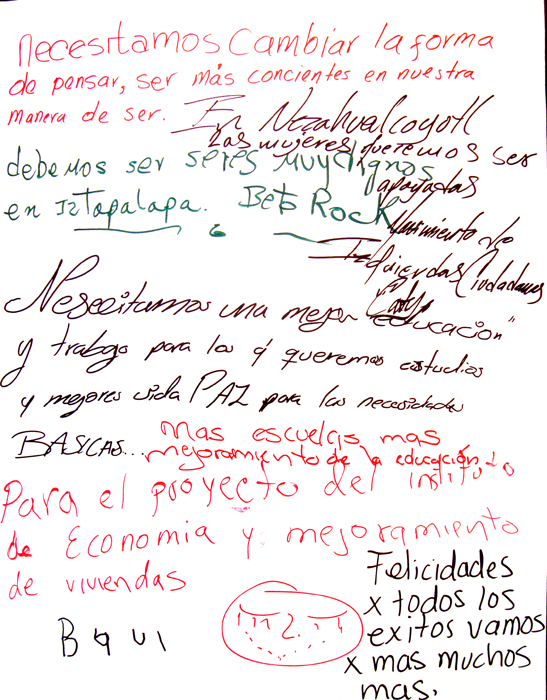 necesitamos Cambiar la forma
de pensar, ser más concientes en nuestra
manera de ser.
En Nezahualcoyotl
Las mujeres queremos ser
apoyadas
debemos ser seres muy dignos
en Iztapalapa. Beto Rock
Movimiento de
Izquierdas Ciudadanas
Neseeitamos una mejor educacion"
y trabajo para los q queremos estudios
y mejores vida PAZ para las necesidades
BASICAS...
Mas escuelas mas
mejoramiento de la educación
Para el proyecto del instituto
de Economia y mejoramiento
de viviendas
Felicidades
x todos los
exitos vamos
x mas muchos
mas.